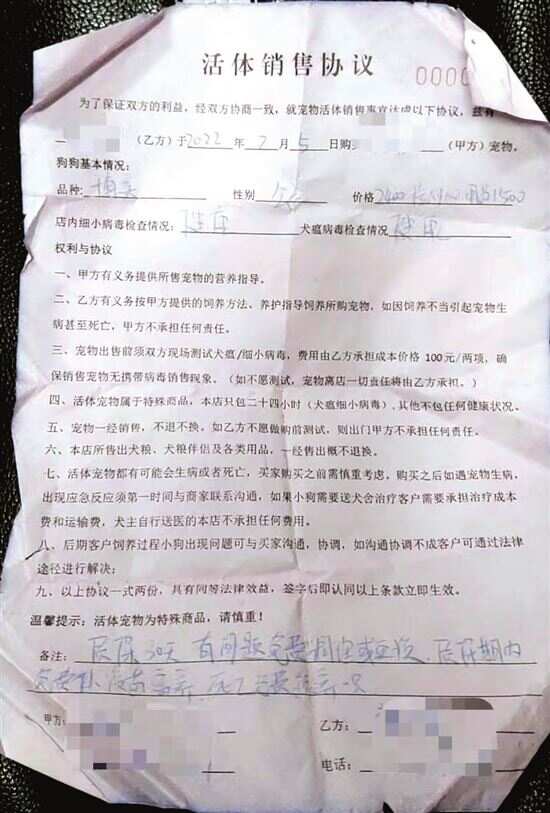 活体销售协议
0000
为了保证双方的利益，经双方协商一致，就宠物活体销售事宜达成以下协议，兹有
（乙方）于2022年2月5日购（甲方）宠物。
狗狗基本情况：
品种： 性别 价格2400
店内细小病毒检查情况： 犬瘟病毒检查情况
权利与协议
一、甲方有义务提供所售宠物的营养指导。
二、乙方有义务按甲方提供的饲养方法、养护指导饲养所购宠物，如因饲养不当引起宠物生
病甚至死亡，甲方不承担任何责任。
三、宠物出售前须双方现场测试犬瘟/细小病毒，费用由乙方承担成本价格 100元/两项，确
保销售宠物无携带病毒销售现象。（如不愿测试，宠物离店一切责任将由乙方承担。）
四、活体宠物属于特殊商品，本店只包二十四小时（犬瘟细小病毒）,其他不包任何健康状况。
五、宠物一经销售，不退不换。如乙方不愿做购前测试，则出门甲方不承担任何责任。
六、本店所售出犬粮、犬粮伴侣及各类用品，一经售出概不退换。
七、活体宠物都有可能会生病或者死亡，买家购买之前需慎重考虑，购买之后如遇宠物生病，
出现应急反应须第一时间与商家联系沟通，如果小狗需要送犬舍治疗客户需要承担治疗成本
费和运输费，犬主自行送医的本店不承担任何费用。
八、后期客户饲养过程小狗出现问题可与买家沟通，协调，如沟通协调不成客户可通过法律
途径进行解决；
九、以上协议一式两份，具有同等法律效益，签字后即认同以上条款立即生效。
温馨提示：活体宠物为特殊商品，请慎重！
备注：质保30天 有问题免费 质保期内
免费 死了免费
甲方： 乙方：
电话：